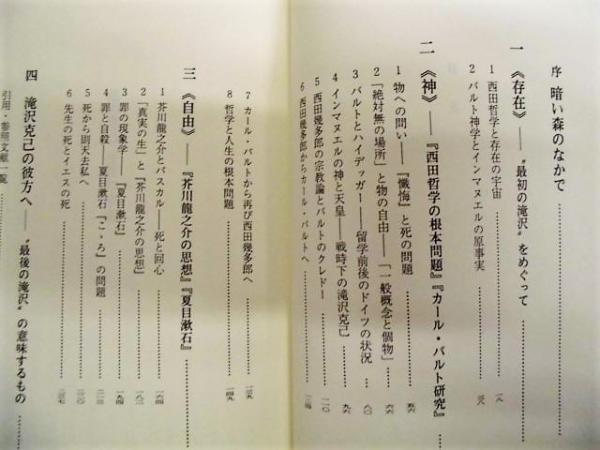 序 暗い森のなかで
一 《存在》——〝最初の滝沢〟をめぐって
1 西田哲学と存在の宇宙 一八
2 バルト神学とインマヌエルの原事実 三八
二 《神》——『西田哲学の根本問題』『カール・バルト研究』
1 物への問い——『懺悔』と死の問題 五六
2 「絶対無の場所」と物の自由——「一般概念と個物」 六六
3 バルトとハイデッガー——留学前後のドイツの状況 八〇
4 インマヌエルの神と天皇——戦時下の滝沢克己 九六
5 西田幾多郎の宗教論とバルトのクレドー 一一〇
6 西田幾多郎からカール・バルトへ 一二四
7 カール・バルトから再び西田幾多郎へ 一三九
8 哲学と人生の根本問題 一四九
三 《自由》——『芥川龍之介の思想』『夏目漱石』
1 芥川龍之介とパスカル——死と回心 一六四
2 「真実の生」と『芥川龍之介の思想』 一八二
3 罪の現象学——『夏目漱石』 一九四
4 罪と自殺——夏目漱石『こゝろ』の問題
5 死から則天去私へ 二二〇
6 先生の死とイエスの死 二三七
四 滝沢克己の彼方へ——〝最後の滝沢〟の意味するもの
引用・参照文献一覧